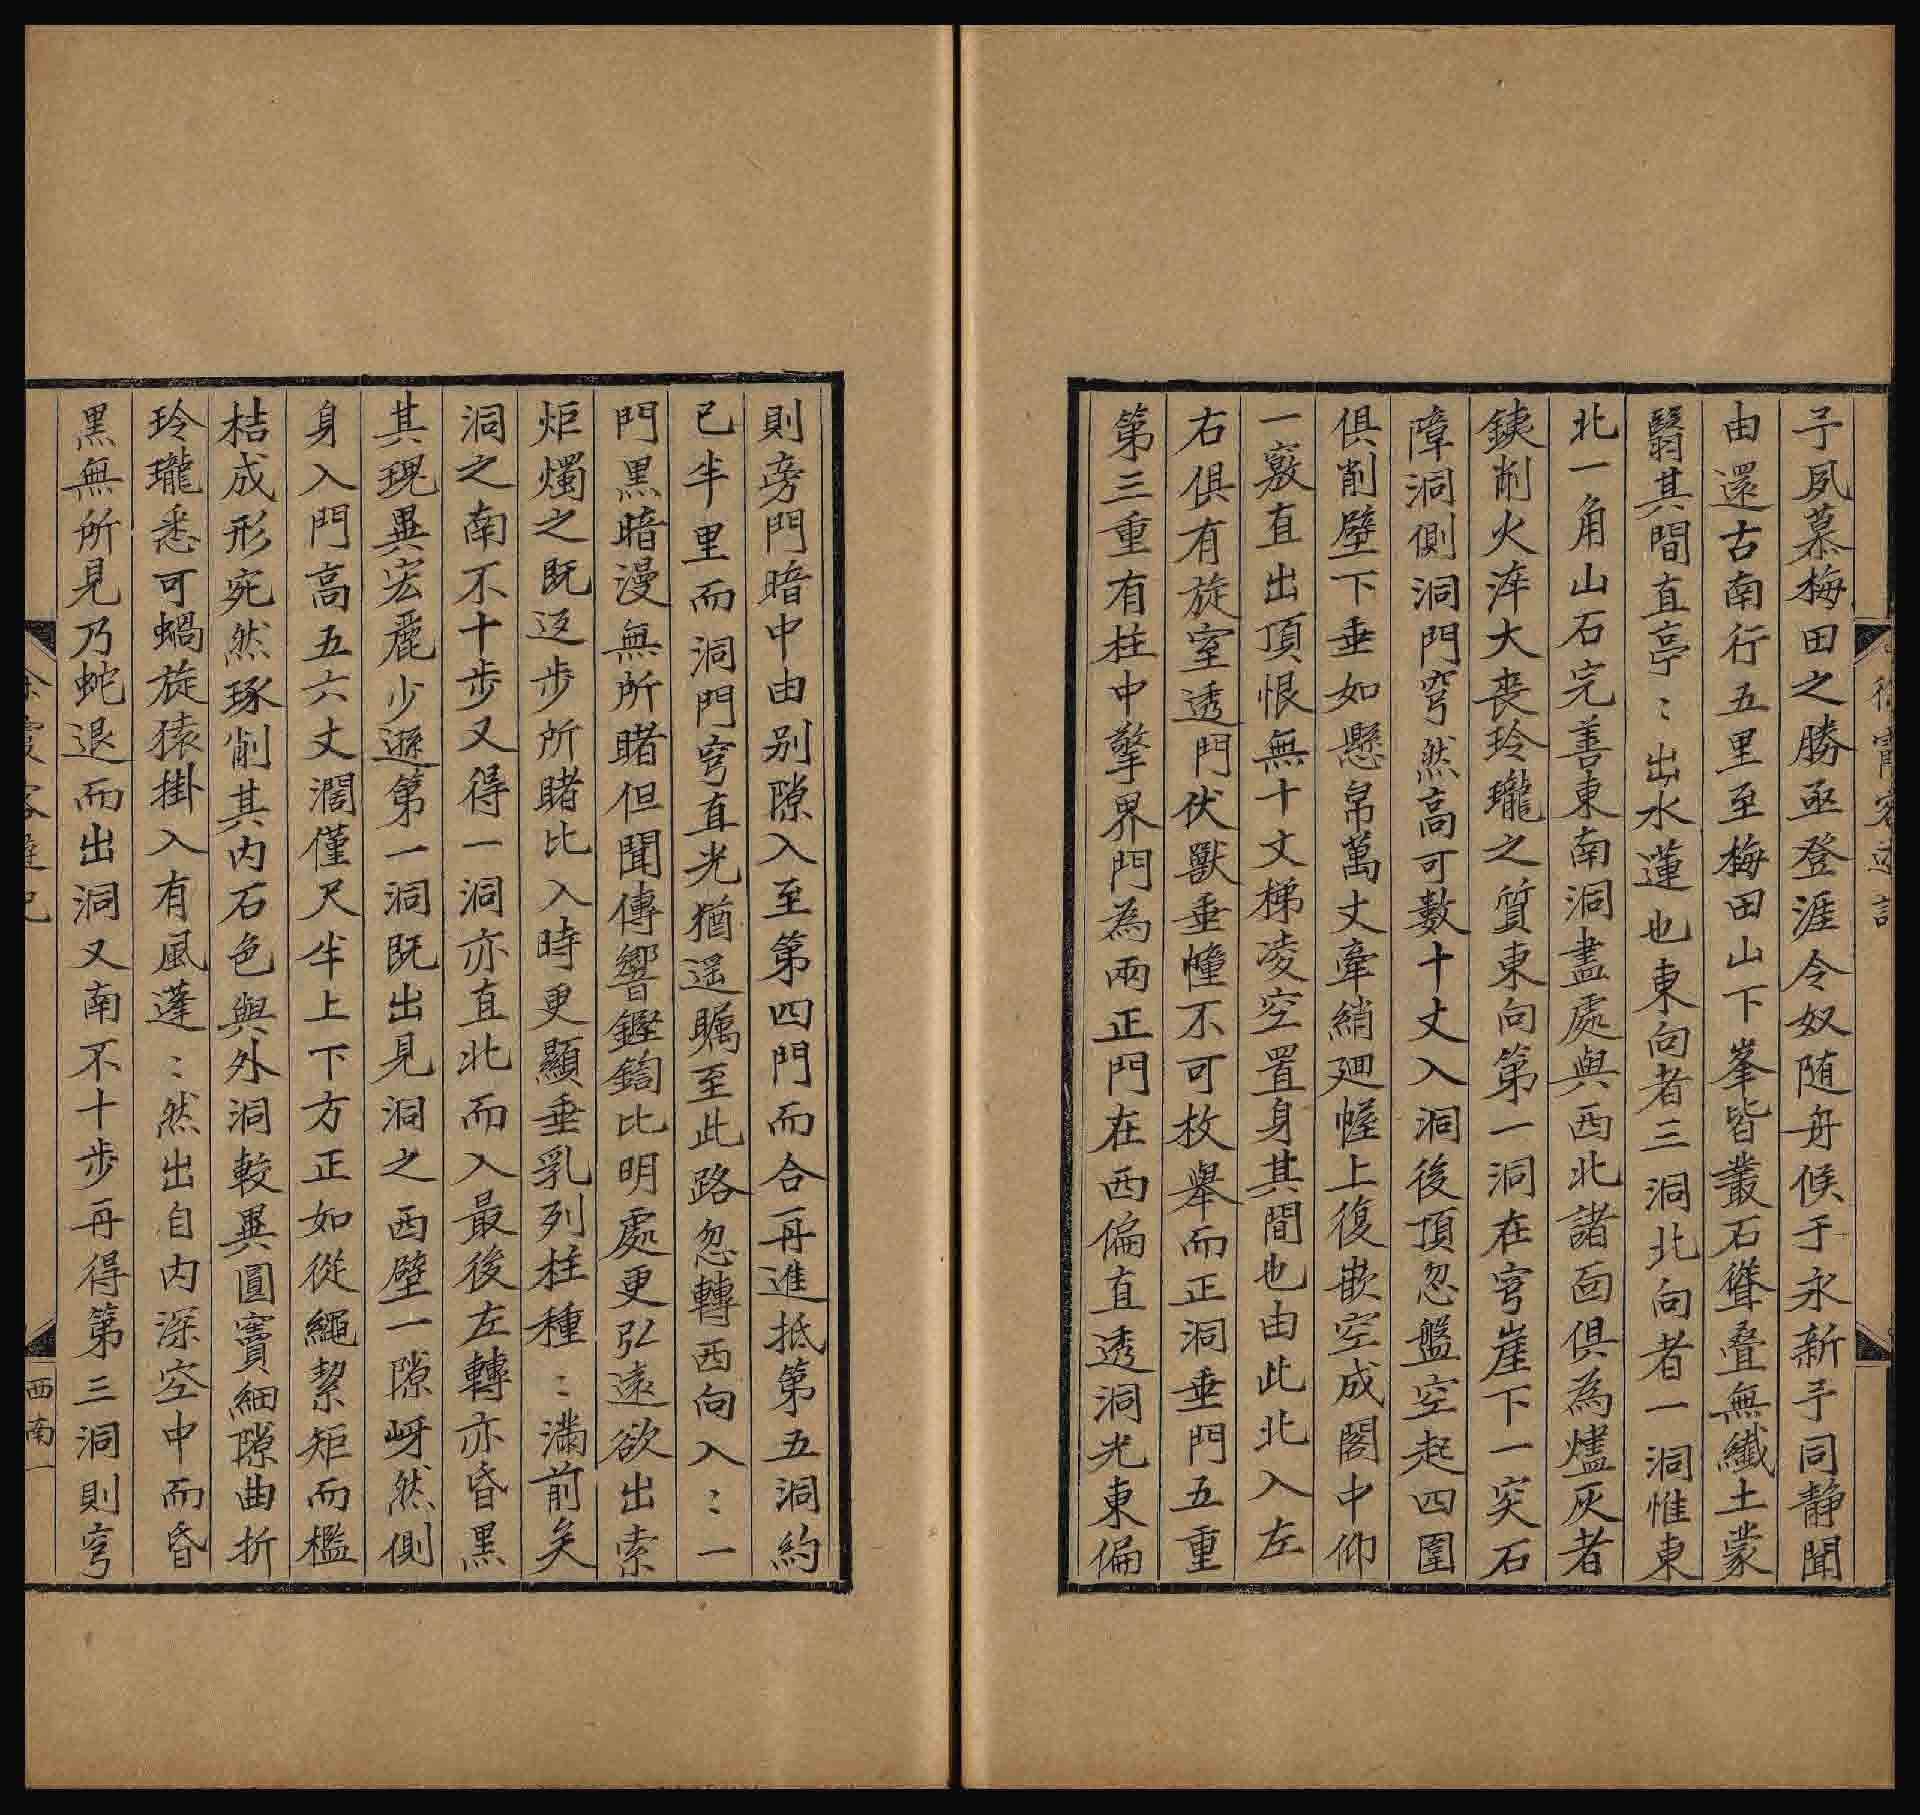 徐霞客遊記
予夙慕梅田之勝亟登涯令奴随舟候于永新予同靜聞
由還古南行五里至梅田山下峯皆叢石聳疊無纖土蒙
翳其間直亭〻出水蓮也東向者三洞北向者一洞惟東
北一角山石完善東南洞盡處與西北諸面俱為燼灰者
鐵削火淬大喪玲瓏之質東向第一洞在穹崖下一突石
障洞側洞門穹然高可數十丈入洞後頂忽盤空起四圍
俱削壁下垂如懸帛萬丈牽綃廻幄上復嵌空成閣中仰
一竅直出頂恨無十丈梯凌空置身其間也由此北入左
右俱有旋室透門伏獸垂幢不可枚舉而正洞垂門五重
第三重有柱中擎界門為兩正門在西偏直透洞光東偏
則旁門暗中由别隙入至第四門而合再進抵第五洞約
已半里而洞門穹直光猶遥矚至此路忽轉西向入〻一
門黑暗漫無所睹但聞傳響鏗鍧比明處更弘遠欲出索
炬燭之既返步所睹比入時更顯垂乳列柱種〻滿前矣
洞之南不十步又得一洞亦直北而入最後左轉亦昏黑
其瑰異宏麗少遜第一洞既出見洞之西壁一隙岈然側
身入門高五六丈濶僅尺半上下方正如從繩絜矩而檻
桔成形宛然琢削其内石色與外洞較異圓竇細隙曲折
玲瓏悉可蝸旋猿掛入有風蓬〻然出自内深空中而昏
黑無所見乃蛇退而出洞又南不十步再得第三洞則穹
徐霞客遊記
西南一